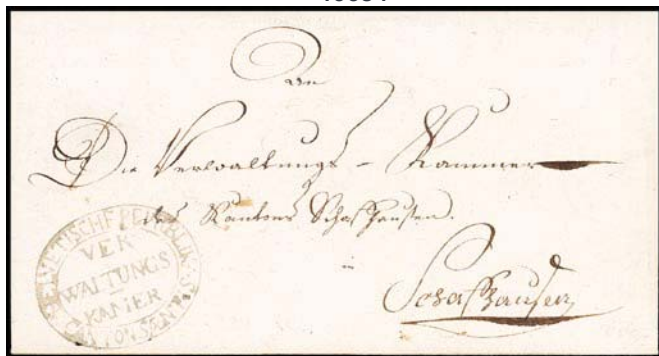 An
Die Verwaltungs - Kammer
des Kantons Schafhausen.
in
Schafhausen
HELVETISCHE REPUBLIK
VER
WALTUNGS
KAMER